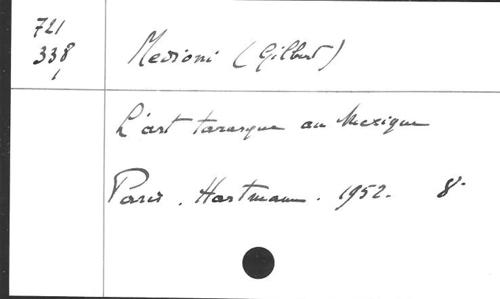 721
338
1
Medioni (Gilbert)
L'art tarasque au Mexique
Paris. Hartmann. 1952. 8°